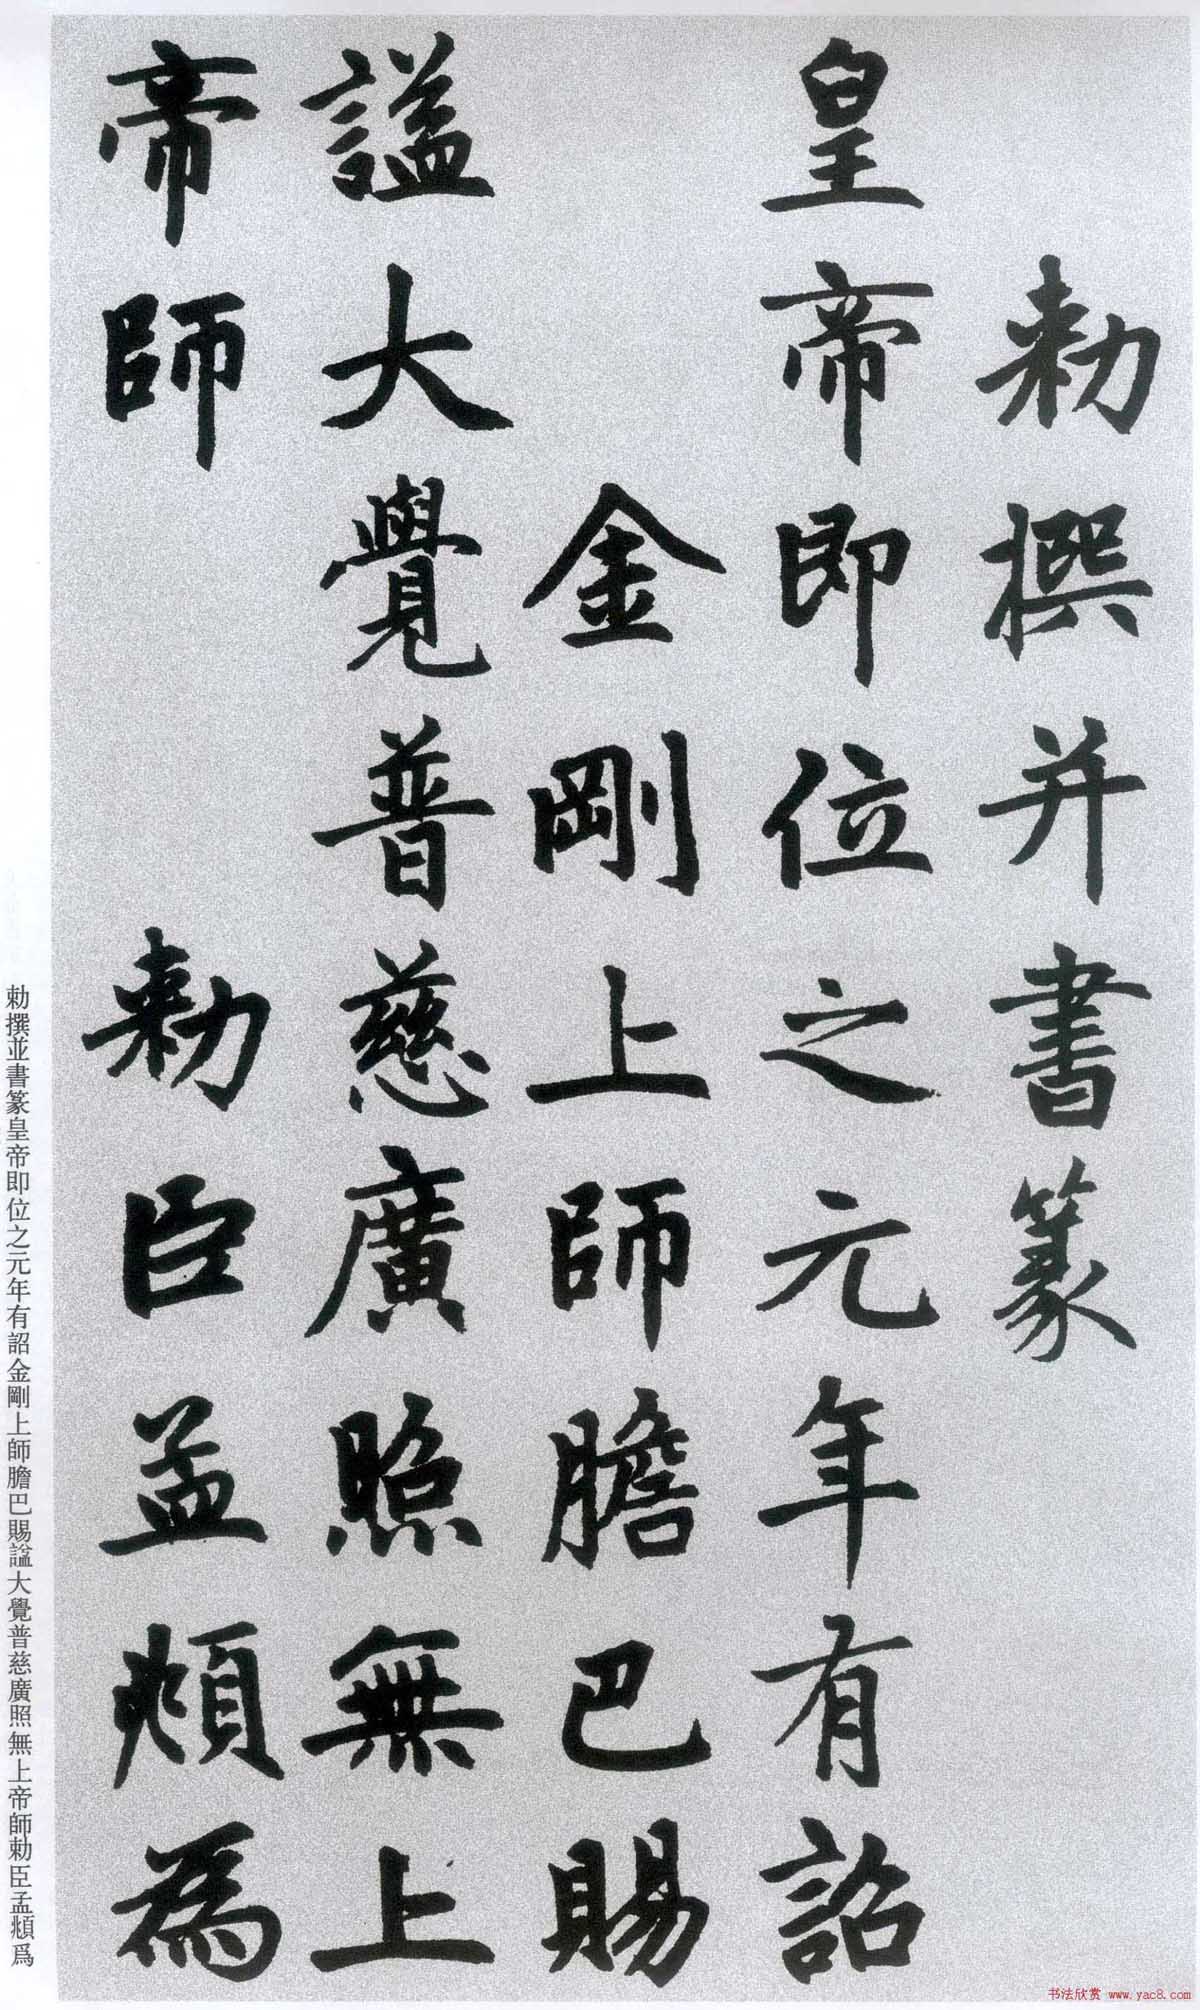 勅撰并書篆
皇帝即位之元年有詔
金剛上師膽巴賜
謚大覺普慈廣照無上
帝師 勅臣孟頫為
勅撰並書篆皇帝即位之元年有詔金剛上師膽巴賜謚大覺普慈廣照無上帝師勅臣孟頫爲
书法欣赏 www.yac8.com